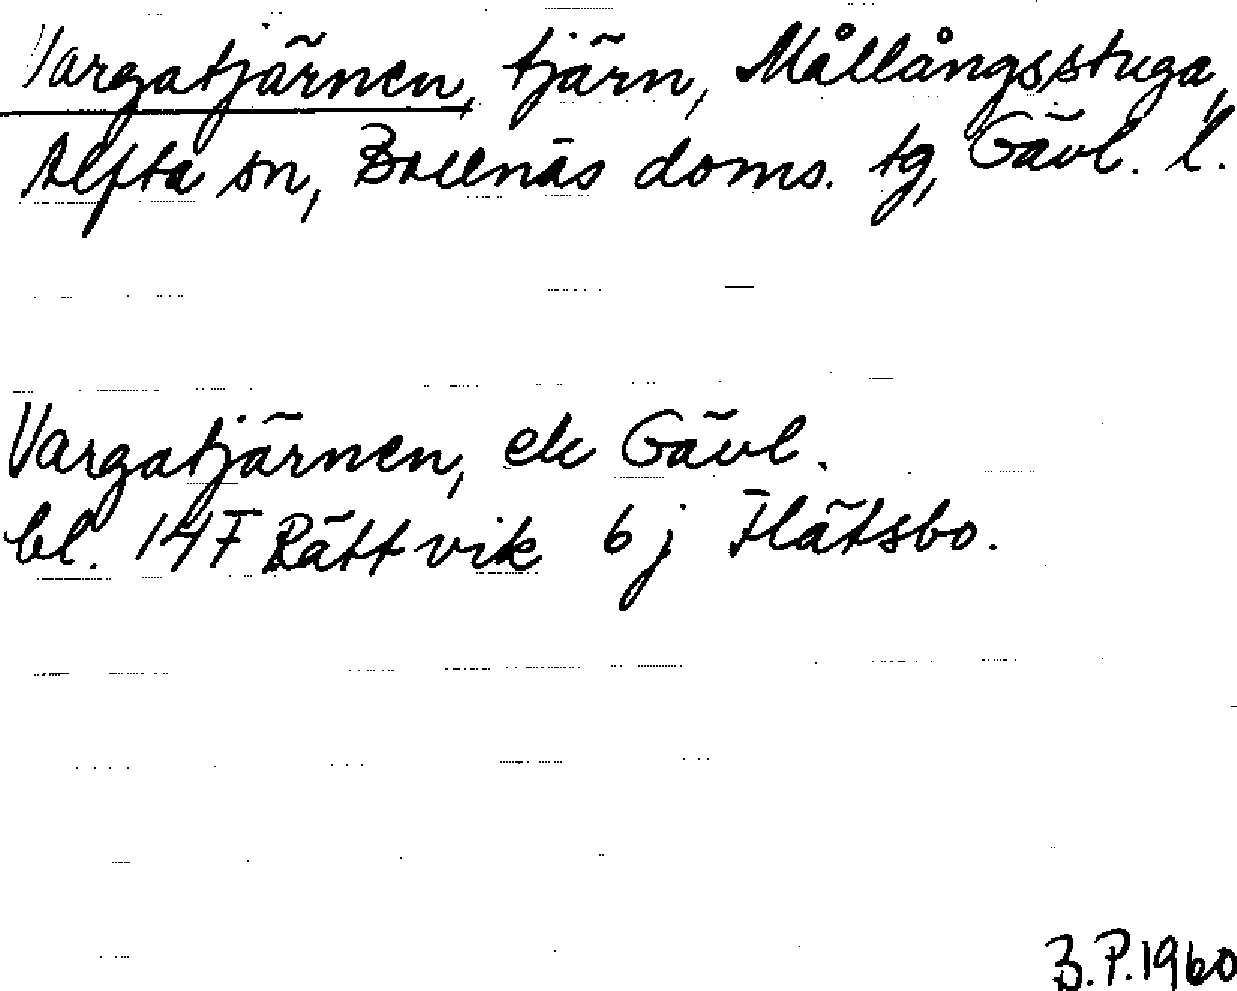 Vargatjärnen, tjärn, Mållångsstuga,
Alfta sn, Bollnäs doms. tg, Gävl. l.
Vargatjärnen, ek Gävl.
bl. 14F Rättvik 6j Flätsbo.
B.P.1960